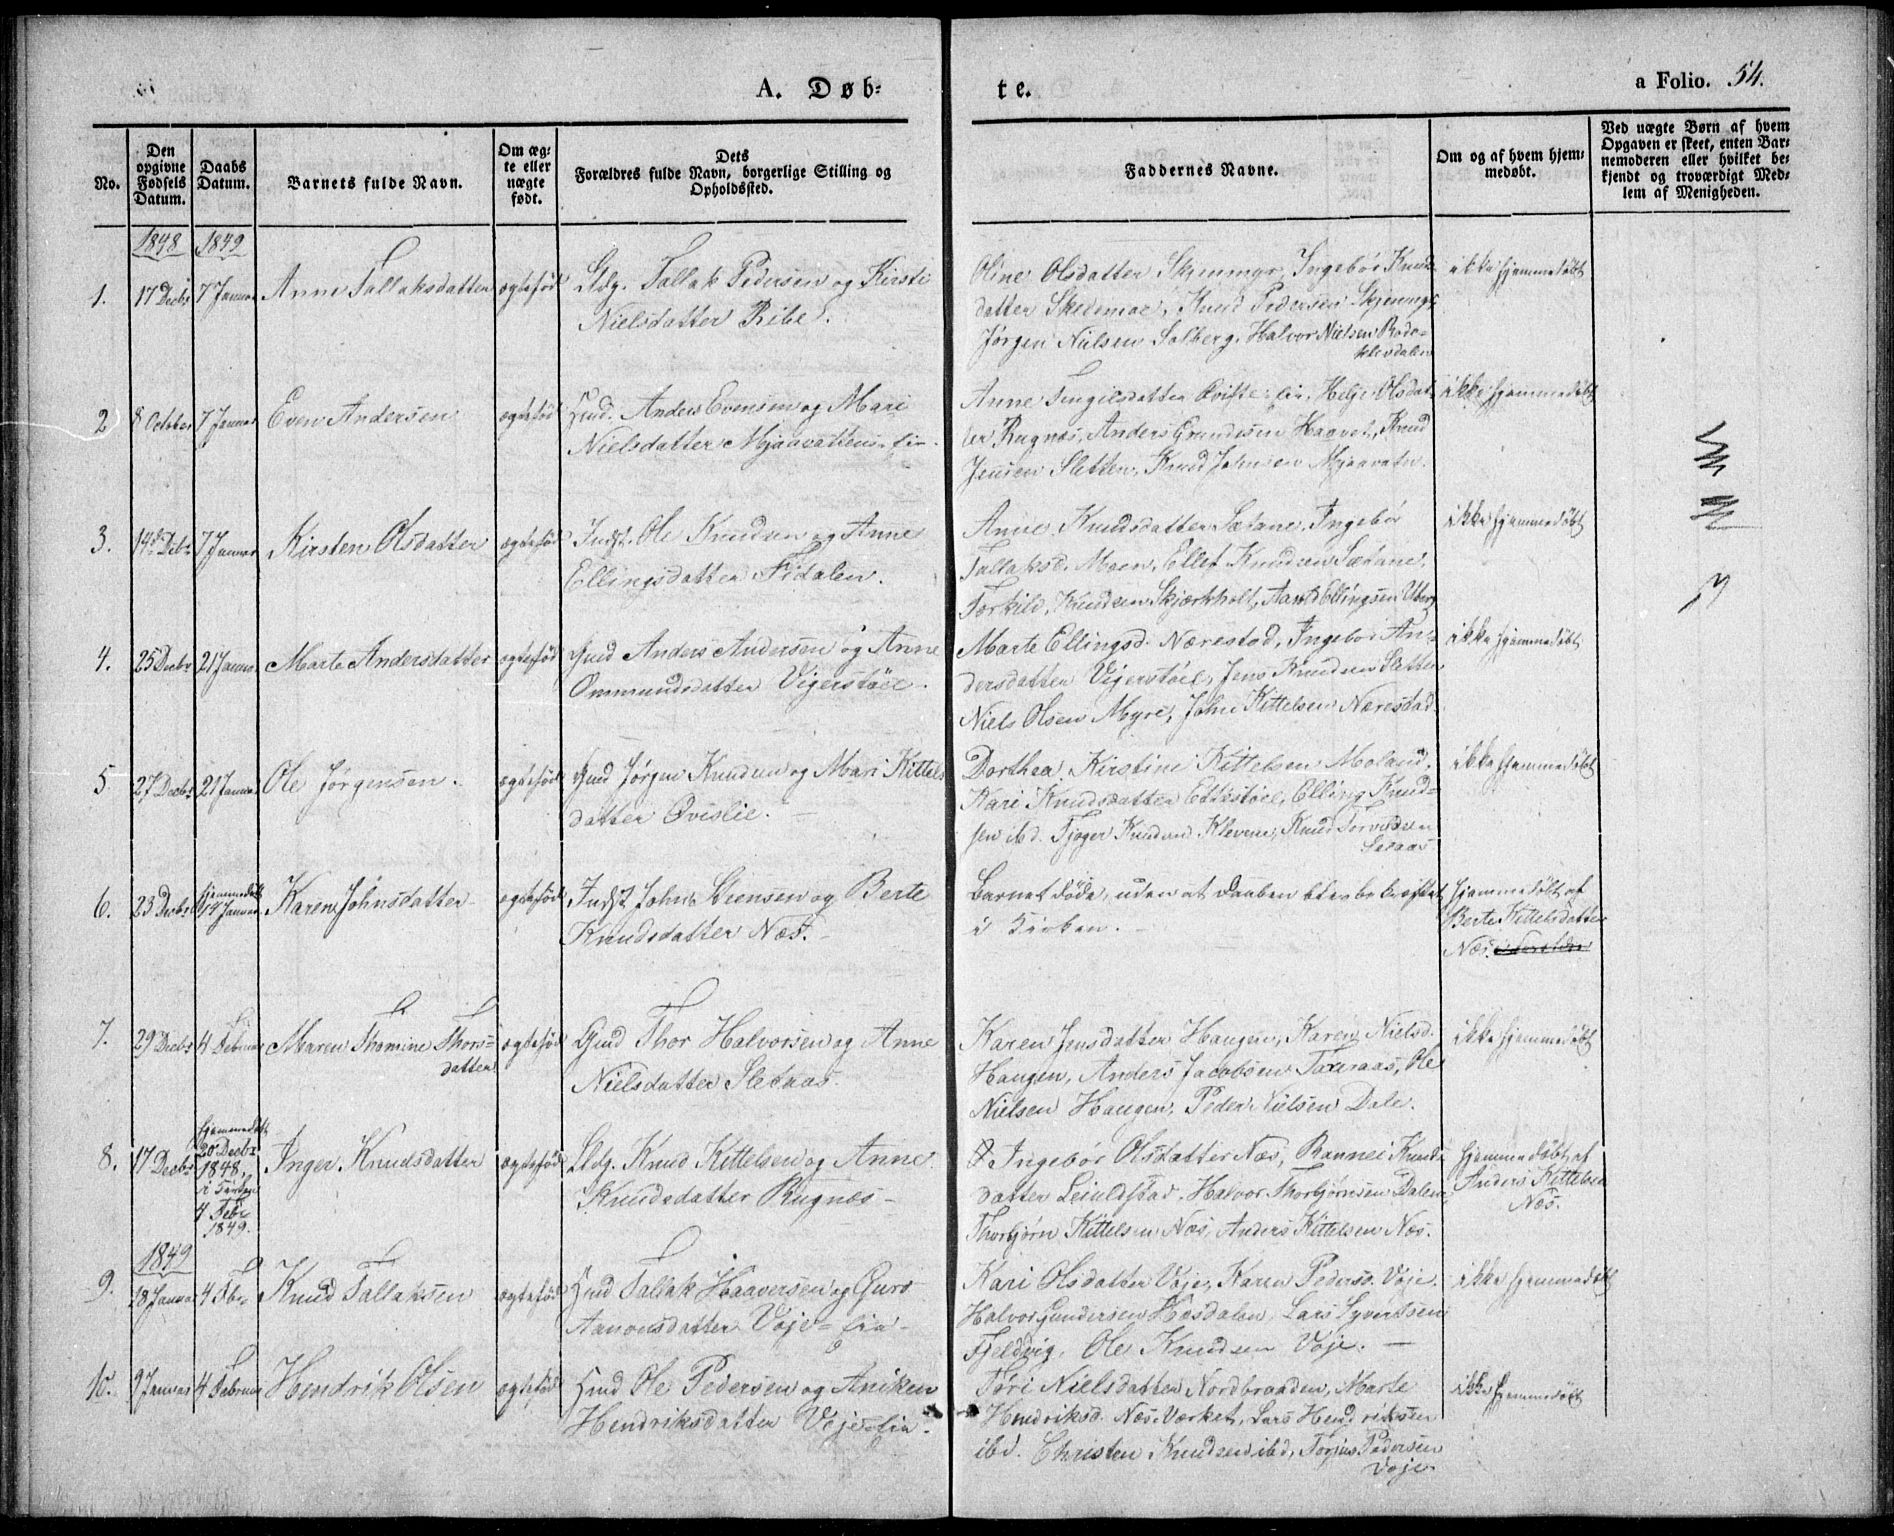 A. Døb-
te.
a Folio. 54.
No.
Den opgivne Fødsels Datum.
Daabs Datum.
Barnets fulde Navn.
Om ægte eller uægte født.
Dets Forældres fulde Navn, borgerlige Stilling og Opholdssted.
Faddernes Navne.
Om og af hvem hjemmedøbt.
Ved uægte Børn af hvem Opgaven er skeet, enten Barnemoderen eller hvilket bekjendt og troværdigt Medlem af Menigheden.
1848 1849
1. 17 Decbr 7 Januar Anne Tallaksdatter ægtefød Tallak Pedersen og Kirsti
Nielsdatter Ribe.
Oline Olsdatter Ingebor Knuds-
datter Knud Pedersen
Jørgen Nielsen Solberg, Halvor Nielsen
ikke hjemmedøbt
2 8 October 7 Januar Even Andersen ægtefød Huusmd. Anders Evensen og Mari
Nielsdatter Mjaavattens-lia.
Anne Helje Olsdat-
ter Rugnæs, Anders Haavet, Knud
Jensen Sletten, Knud Johnsen Mjaavatn.
ikke hjemmedøbt
3. 14de Debr 7 Januar Kirsten Olsdatter ægtefød Indst. Ole Knudsen og Anne
Ellingsdatter Fidalen.
Anne Knudsdatter Sætane, Ingebor
Tallaksd. Moen, Ellef Knudsen Sætane,
Terkild Knudsen Skjærkholt, Ellingsen
ikke hjemmedøbt
4. 25 Decbr 21 Januar Marte Andersdatter ægtefød Gmd Anders Andersen og Anne
Ommundsdatter Vigerstöel.
Marte Ellingsd. Nærestad, Ingebor An-
dersdatter Vigerstöel, Jens Knudsen Sletten
Niels Olsen Myre, John Kittelsen Nærestad.
ikke hjemmedøbt
5 27 Decbr 21 Januar Ole Jørgensen. ægtefød Gmd Jørgen Knudsen og Mari Kittels
datter Øvislie.
Dorthea Kirstine Kittelsen Moland,
Kari Knudsdatter Ettestöel, Elling Knud-
sen ibd. Tjøger Knudsen Klevene, Knud
ikke hjemmedøbt
6. 23 Decbr hjemmedøbt 14 Januar Karen Johnsdatter ægtefød Indst John Steensen og Berte
Knudsdatter Næs.
Barnet døde, uden at Daaben blev bekræftet
i Kirken.
hjemmedøbt af
Berte Kittelsdatter
Næs.
7. 29 Decbr 4 Februar Maren Thomine Thors-
datter ægtefød Gmd Thor Halvorsen og Anne
Nielsdatter Sletaas.
Karen Jensdatter Haugen, Karen Nielsd.
Haugen, Anders Jacobsen Ole
Nielsen Haugen, Peder Nielsen Dale.
ikke hjemmedøbt
8. 17 Decbr hjemmedøbt
20 Decbr
1848,
i Kirken
4 Febr
1849.
Inger Knudsdatter ægtefød Knud Kittelsen og Anne
Knudsdatter Rugnæs
Ingebor Olsdatter Næs, Knuds-
datter Halvor Thorbjørnsen Dalen
Thorbjørn Kittelsen Næs, Anders Kittelsen Næs.
hjemmedøbt af
Anders Kittelsen
Næs.
1849
9. 18 Januar 4 Fbr Knud Tallaksen ægtefød Hmd Tallak Haaversen og Guro
Aanonsdatter Voje-lia
Kari Olsdatter Voje, Karen Pedersd. Voje.
Halvor Gundersen Hosdalen, Lars Syvertsen
Fjeldvig, Ole Knudsen Voje.
ikke hjemmedøbt
10. 9 Januar 4 Februar Hendrik Olsen ægtefød Hmd Ole Pedersen og Aniken
Hendriksdatter Voje-lia.
Tori Nielsdatter Nordbraaden, Marte
Hendriksd. Næs-Værket, Lars Hendriksen
ibd. Christen Knudsen ibd, Torjus Pedersen
Voje
ikke hjemmedøbt